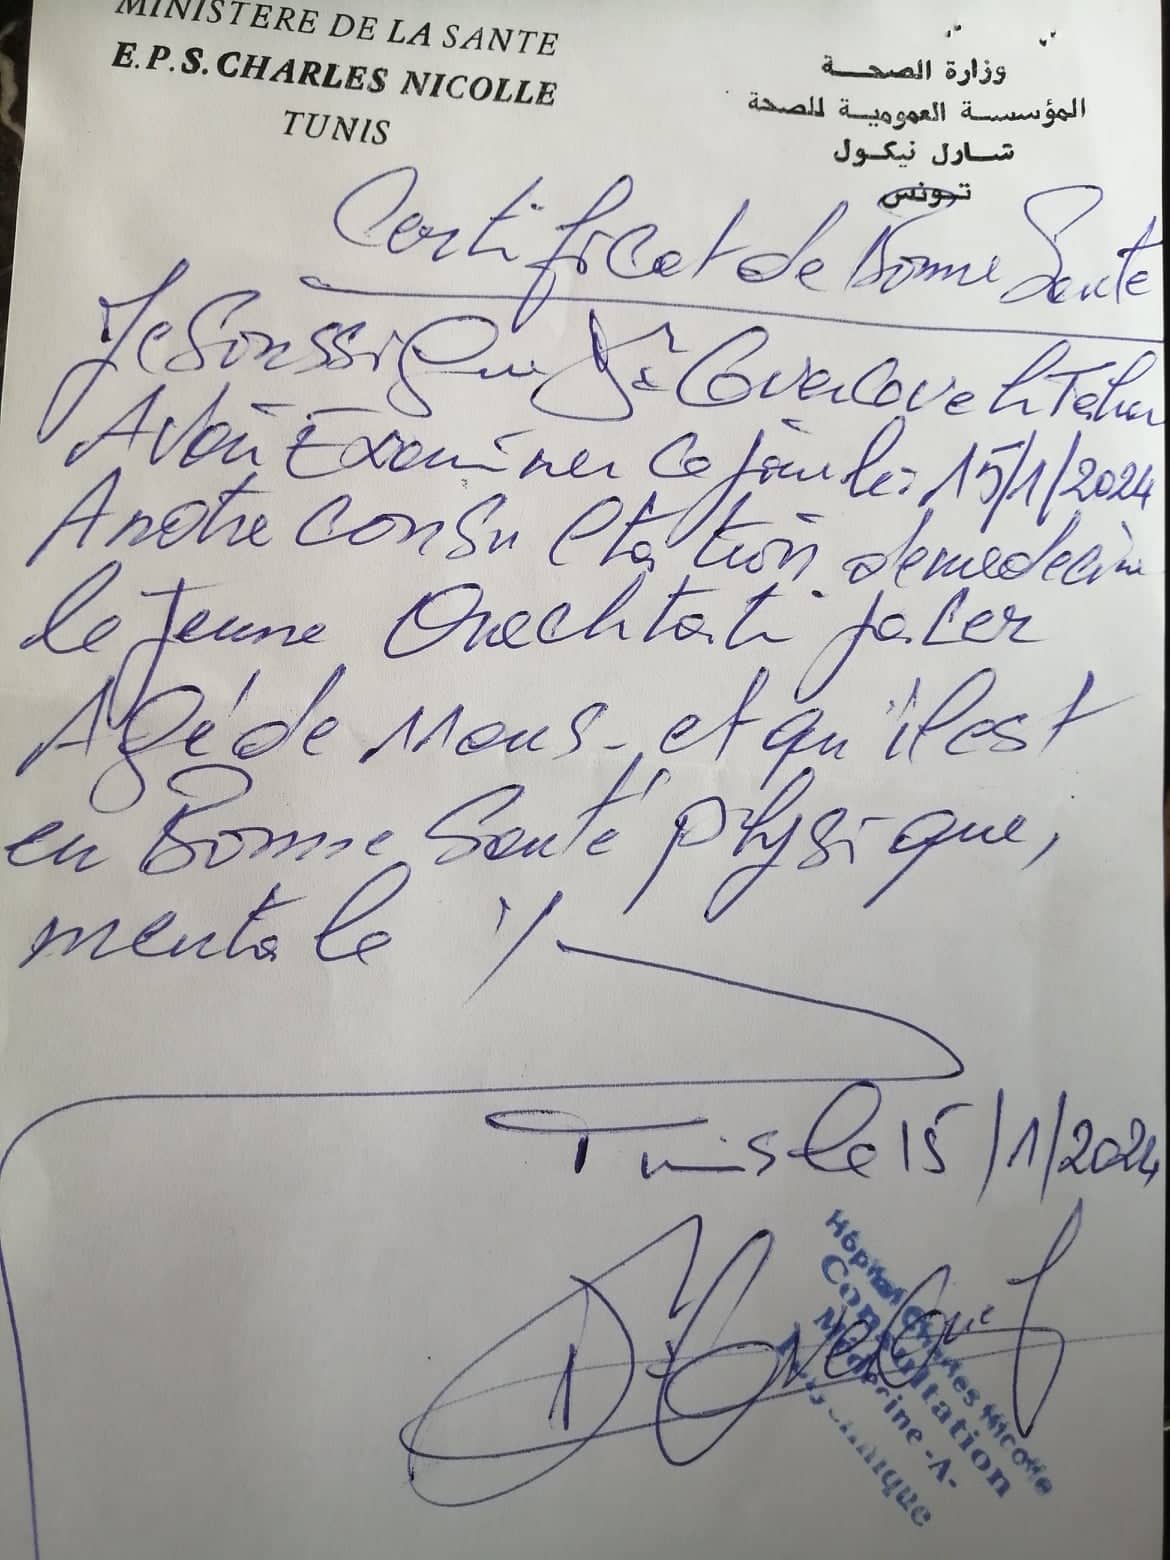 MINISTERE DE LA SANTE
E.P.S. CHARLES NICOLLE
TUNIS
وزارة الصحة
المؤسسة العمومية للصحة
شارل نيكول
تونس
Certificat de Bonne Santé
Je Soussigne Dr
Avoir Examiner ce jour le: 15/1/2024
A notre consultation de medecine
le Jeune Ouechtati
Agé de 11 ans - et qu'il est
en Bonne Santé physique,
mentale ./
Tunis le 15/1/2024
Hôpital Charles Nicolle
Consultation
Médecine -A-